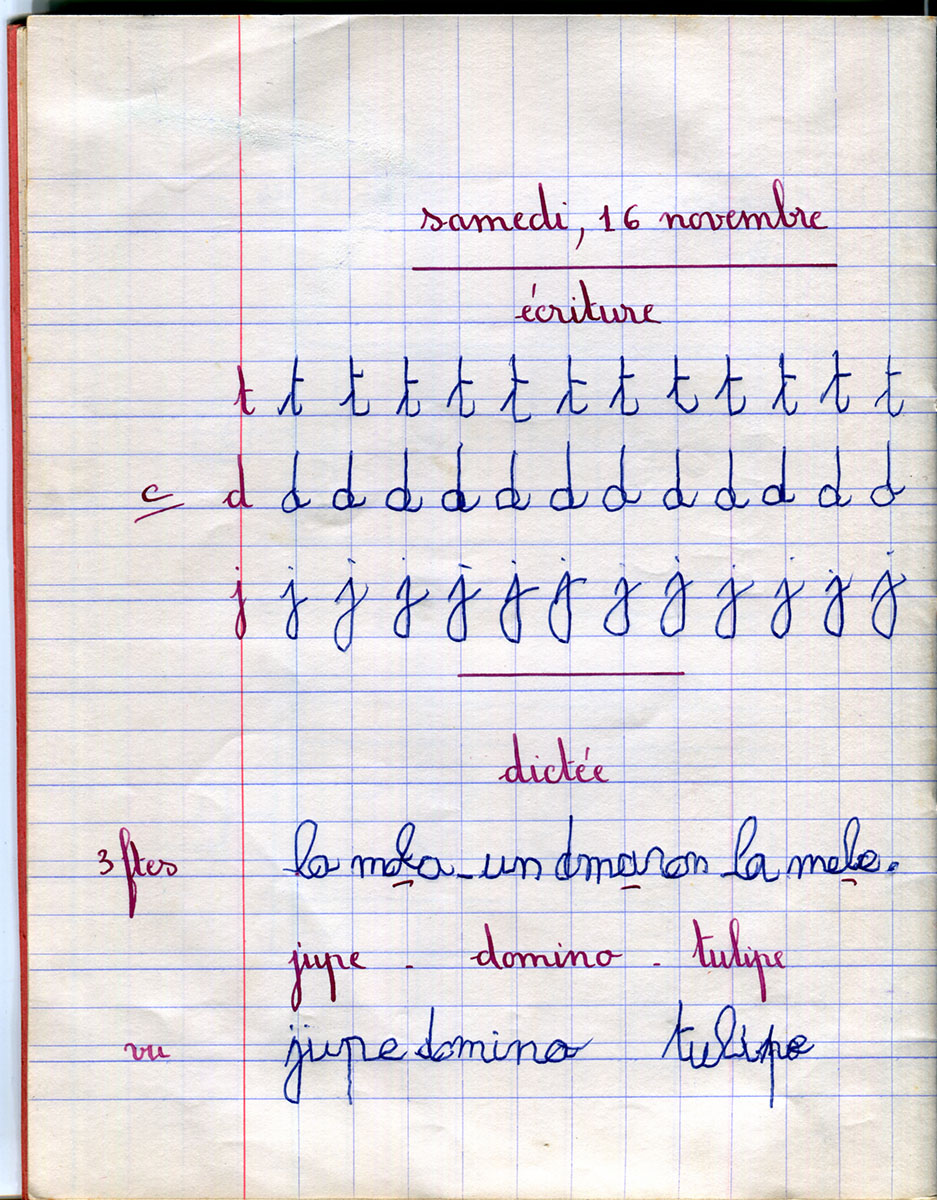 samedi, 16 novembre
écriture
t t t t t t t t t t t t t
c d d d d d d d d d d d d d
j j j j j j j j j j j j j
dictée
3 ftes la moto _ un dmaron la mele.
jupe - domino - tulipe
vu jupe domino tulipe